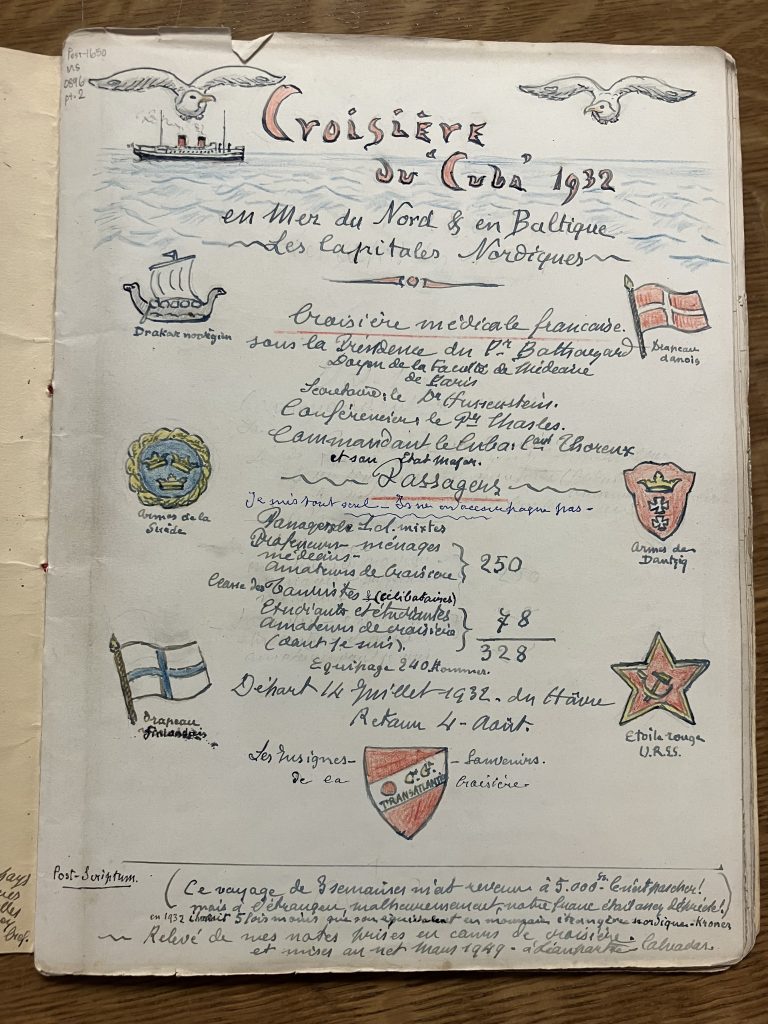 Post-1650
MS
0896
pt. 2
Croisière
du "Cuba" 1932
en Mer du Nord & en Baltique
Les Capitales Nordiques
Drakar norvégien
Drapeau
danois
Croisière médicale française.
sous la Présidence du Pr Balthazard
Doyen de la Faculté de Médecine
de Paris
Secrétaire: le Dr
Conférencier: le Pr Thasles.
Commandant le Cuba: Cant Thoreux
et son Etat Major.
Passagers
Je suis tout seul - ne m'accompagne pas -
Armes de la
Suède
Armes de
Dantzig
Passagers de 1. cl. mixtes
Professeurs - ménages
médecins -
amateurs de croisière
250
Classe des Touristes: (célibataires)
Etudiants et étudiantes
amateurs de croisière
(dont je suis).
78
328
Equipage 240 hommes.
Départ 14 Juillet 1932 - du Hâvre
Retour 4 - Août.
Drapeau
Finlandais
Etoile rouge
U.R.S.S.
Les Insignes - Souvenirs.
de la Croisière.
C. G.
TRANSATLANTIQUE
Post-Scriptum.
(Ce voyage de 3 semaines m'est revenu à 5.000 frs C'était pas cher!
mais à l'étranger, malheureusement notre franc était assez déprécié!)
en 1932 5 fois moins que son équivalent en monnaie étrangère nordique - Kroner
Relevé de mes notes prises en cours de croisière.
et mises au net Mars 1949 - à Calvados.